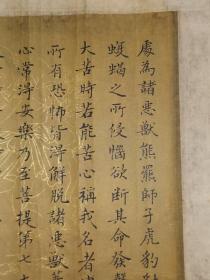 處為諸惡獸熊羆師子虎豹豺
蝮蝎之所侵惱欲斷其命發聲
大苦時若能至心稱我名者
所有恐怖皆得解脫諸惡獸等
心常得安樂乃至菩提第七大